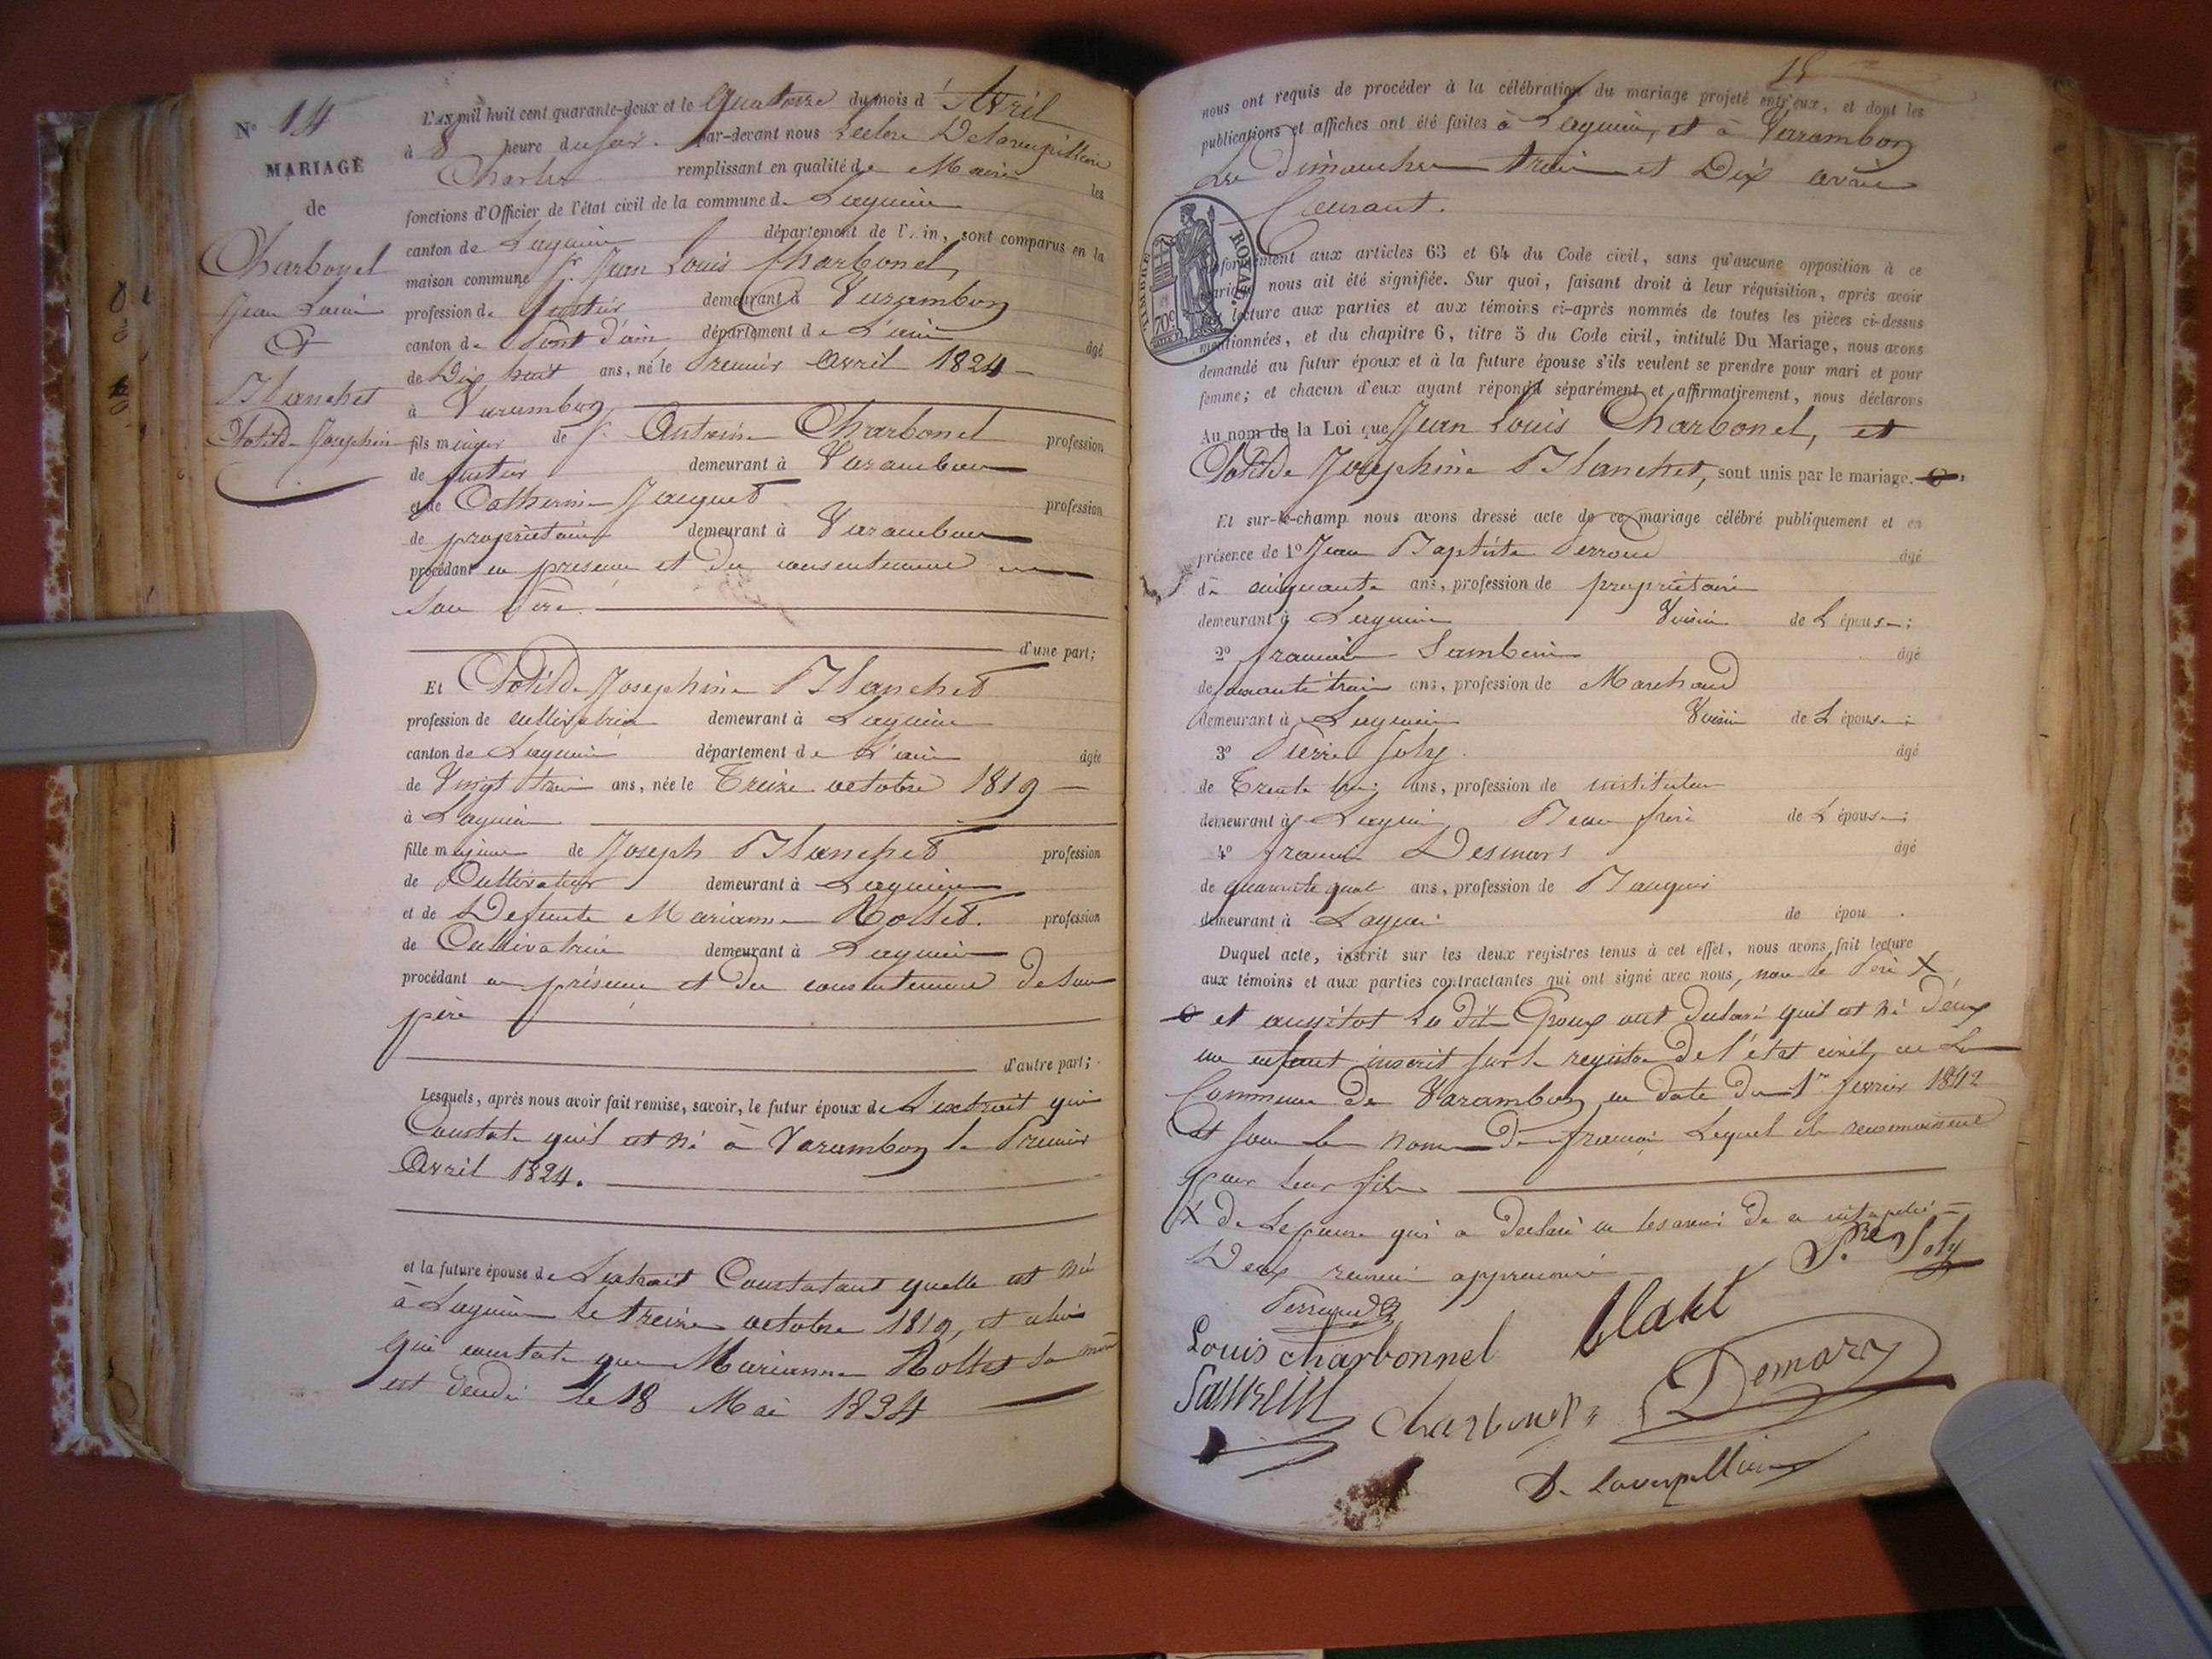 Nº 14
MARIAGE
de
Charbonel
Jean Louis
Et
Blanchet
Clotilde Josephine
L'AN mil huit cent quarante-deux et le Quatorze du mois d'Avril
à 8 heure du soir. par-devant nous
Charles remplissant en qualité de Maire les
fonctions d'Officier de l'état civil de la commune de Lagnieu
canton de Lagnieu département de l'Ain, sont comparus en la
maison commune Sr. Jean Louis Charbonel,
profession de demeurant à Varambon
canton de Pont d'ain département de L'ain âgé
de Dix huit ans, né le Premier Avril 1824
à Varambon
fils mineur de Sr. Antoine Charbonel profession
de demeurant à Varambon
et de Catherine Jacquet profession
de propriétaire demeurant à Varambon
procédant en presence et du consentement
son Père.
d'une part;
Et Clotilde Josephine Blanchet
profession de cultivatrice demeurant à Lagnieu
canton de Lagnieu département de L'ain âgée
de Vingt trois ans, née le Treize octobre 1819
à Lagnieu
fille majeure de Joseph Blanchet profession
de Cultivateur demeurant à Lagnieu
et de Defunte Marianne Rollet. profession
de Cultivatrice demeurant à Lagnieu
procédant en présence et du consentement de son
père
d'autre part;
Lesquels, après nous avoir fait remise, savoir, le futur époux de L'extrait qui
Constate quil est né à Varambon le Premier
Avril 1824.
et la future épouse de Lextrait Constatant quelle est née
à Lagnieu le treize octobre 1819, et celui
qui constate que Marianne Rollet sa mère
est décédée le 18 Mai 1834
nous ont requis de procéder à la célébration du mariage projeté entr'eux, et dont les
publications et affiches ont été faites à Lagnieu, et à Varambon
Les dimanches trois et Dix avril
Courant.
TIMBRE ROYAL. 70c
Conformément aux articles 63 et 64 du Code civil, sans qu'aucune opposition à ce
mariage nous ait été signifiée. Sur quoi, faisant droit à leur réquisition, après avoir
fait lecture aux parties et aux témoins ci-après nommés de toutes les pièces ci-dessus
mentionnées, et du chapitre 6, titre 5 du Code civil, intitulé Du Mariage, nous avons
demandé au futur époux et à la future épouse s'ils veulent se prendre pour mari et pour
femme; et chacun d'eux ayant répondu séparément et affirmativement, nous déclarons
Au nom de la Loi que Jean Louis Charbonel, et
Clotilde Josephine Blanchet, sont unis par le mariage.
Et sur-le-champ nous avons dressé acte de ce mariage célébré publiquement et en
présence de 1º Jean Baptiste âgé
de cinquante ans, profession de propriétaire
demeurant à Lagnieu Voisin de L'épouse;
2º françois âgé
de soixante trois ans, profession de Marchand
demeurant à Lagnieu Voisin de L'épouse;
3º Pierre Joly. âgé
de Trente ans, profession de instituteur
demeurant à Lagnieu Beau frère de L'épouse;
4º françois Desmars âgé
de quarante quat ans, profession de
demeurant à Lagnieu de épou .
Duquel acte, inscrit sur les deux registres tenus à cet effet, nous avons fait lecture
aux témoins et aux parties contractantes qui ont signé avec nous, non le Père X
et aussitot Les dits Epoux ont declaré quil est né d'eux
un enfant inscrit sur le registre de l'état civil, en La
Commune de Varambon en date du 1er fevrier 1842
et sous le nom de françois Lequel ils reconnaissent
pour leur fils
X de Lepouse qui a declaré ne le savoir de ce interpellé
Deux renvois approuvés Pre Joly
Louis charbonnel
Demars